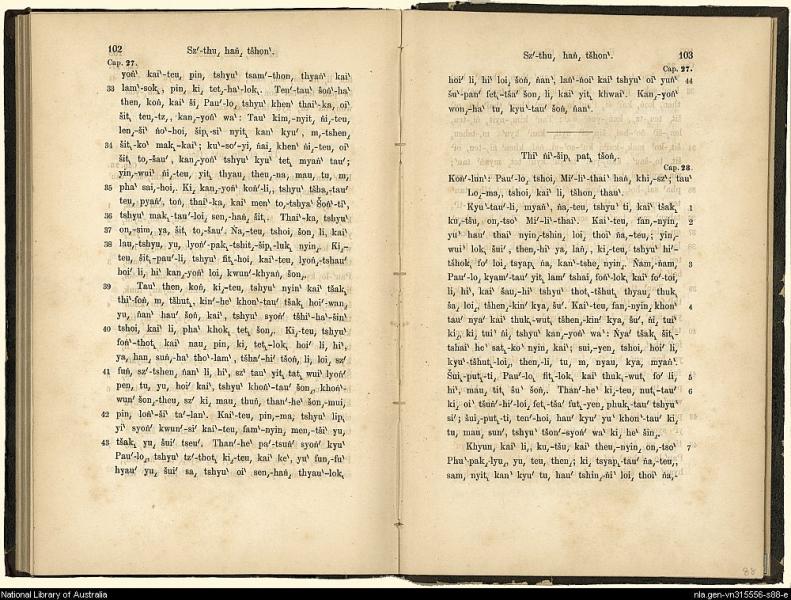 102
Sz′-thu, haṅ, tšhonˋ.
Cap. 27.
yoṅˋ kaiˋ-teu, pin, tshyuˋ tsam′-thon, thyaṅˋ kaiˋ
33 lamˋ-sok˛, pin, ki, tet˛-haˋ-lok˛. Ten′-tauˋ šoṅˋ-ha
then, koṅ, kaiˋ ši, Pau′-lo, tshyuˋ khenˋ thai′-ka, oi
šit˛ teu,-tz, kan,-yoṅˋ waˋ: Tauˋ kim,-nyit˛ ṅi,-teu,
len,-šiˋ ṅoˋ-hoi, šip˛-siˋ nyit˛ kanˋ kyu′, m,-tshen,
34 šit˛-koˋ mak˛-kaiˋ; kuˋ-so′-yi, ṅai, khenˋ ṅi,-teu, oi
šit˛ to,-šau′, kan,-yoṅˋ tshyuˋ kyuˋ tet˛ myaṅˋ tau′;
yin,-wuiˋ ṅi,-teu, yit˛ thyau, theu,-na, mau, tu, m,
35 phaˋ sai,-hoi,. Ki, kan,-yoṅˋ koṅ′-li,, tshyuˋ tšha,-tau′
teu, pyaṅ′, toṅ, thai′-ka, kaiˋ men′ to,-tshyaˋ Šoṅˋ-tiˋ,
36 tshyuˋ mak˛-tau′-loi, sen,-haṅ, šit˛. Thaiˋ-ka, tshyuˋ
37 on,-sim, ya, šit˛ to,-šau′. Ṅa,-teu, tshoi, šon, li, kaiˋ
38 lau,-tshyu, yu, lyoṅ′-pak˛-tshit˛-šip˛-luk˛ nyin,. Ki,-
teu, šit˛-pau′-li, tshyuˋ fit˛-hoi, kaiˋ-teu, lyoṅ,-tshauˋ
hoi′ li, hiˋ kan,-yoṅˋ loi, kwun′-khyaṅ, šon,.
39 Tauˋ then, koṅ, ki,-teu, tshyuˋ nyinˋ kaiˋ tšak˛
thi′-foṅ, m, tšhut˛; kin′-heˋ khonˋ-tau′ tšak˛ hoi′-wan,
yu, ṅanˋ hauˋ šoṅ, kaiˋ, tshyuˋ syoṅ′ tšhi′-haˋ-šin′
40 tshoi, kaiˋ li, phaˋ khok˛ tet˛ šon,. Ki,-teu, tshyuˋ
foṅˋ-thot˛ kaiˋ nau, pin, ki, tet˛-lok˛ hoi′ li, hiˋ,
ya, han, suṅ,-haˋ tho′-lamˋ, tšha′-hi′ tšhoṅ, li, loi, sz′
41 fuṅ, sz′-tshen, ṅanˋ li, hiˋ, szˋ tauˋ yit˛ tat˛ wuiˋ lyoṅ′
pen, tu, yu, hoi′ kai, tshyuˋ khoṅˋ-tau′ šon,, khoṅˋ-
wun′ šon,-theu, sz′ ki, mau, thuṅ, than′-heˋ šon,-mui,
42 pin, loṅˋ-šiˋ taˋ-lan′. Kaiˋ-teu, pin,-ma, tshyuˋ lip˛
yiˋ syoṅ′ kwun′-siˋ kaiˋ-teu, famˋ-nyin, men,-tšiˋ yu,
43 tšak˛ yu, šui′ tseu′. Than′-heˋ pa′-tsuṅ′ syoṅ′ kyuˋ
Pau′-lo,, tshyuˋ tz′-thot˛ ki,-teu, kaiˋ keˋ, yuˋ fun,-fuˋ
hyau′ yu, šui′ sa, tshyuˋ oiˋ sen,-haṅ, thyauˋ-lok˛
Sz′-thu, haṅ, tšhonˋ.
103
Cap. 27.
hoi′ li, hiˋ loi, šoṅ, ṅanˋ; laṅˋ-ṅoi′ kaiˋ tshyuˋ oiˋ yuṅˋ 44
šuˋ-pan′ fet˛-tšaˋ šon, li, kaiˋ yit˛ khwaiˋ. Kan,-yoṅˋ
won,-haˋ tu, kyuˋ-tauˋ šoṅ, ṅanˋ.
Thiˋ ṅiˋ-šip˛ pat˛ tšoṅ,.
Cap. 28.
Koṅ′-lunˋ: Pau′-lo, tshoi, Mi′-liˋ-thaiˋ han, khi,-szˋ; tauˋ
Lo,-ma,, tshoi, kaiˋ li, tšhon, thauˋ.
Kyuˋ-tauˋ-li, myaṅˋ, ṅa,-teu, tshyuˋ ti, kaiˋ tšak˛ 1
ku,-tšu, on,-tsoˋ Mi′-liˋ-thaiˋ. Kaiˋ-teu, fan,-nyin, 2
yuˋ hauˋ thaiˋ nyin,-tshin, loi, thoiˋ ṅa,-teu,; yin,-
wuiˋ lok˛ šui′, then,-hiˋ ya, laṅ,, ki,-teu, tshyuˋ hiˋ-
tšhok˛ fo′ loi, tsyap˛ ṅa, kanˋ-tshe, nyin,. Ṅam,-ṅam, 3
Pau′-lo, kyam′-tau′ yit˛ lamˋ tshai, foṅˋ-lok˛ kaiˋ fo′-toi,
li, hiˋ, kaiˋ šau,-hiˋ tshyuˋ thot˛-tšhut˛ thyau, thuk˛
ša, loi,, tšhen,-kin′ kya, šu′. Kaiˋ-teu, fan,-nyin, khonˋ 4
tau′ nya′ kaiˋ thuk˛-wut˛ tšhen,-kin′ kya, šu′, ṅi, tuiˋ
ki,, ki, tuiˋ ṅi, tshyuˋ kan,-yoṅˋ waˋ: Ṅya′ tšak˛ šit˛-
tshai heˋ sat˛-ko′ nyin, kaiˋ; sui,-yen, tshoi, hoi′ li,
kyuˋ-tšhut˛-loi,, then,-li, tu, m, nyau, kya, myaṅˋ.
Šui˛-put˛-ti, Pau′-lo, fit˛-lok˛ kaiˋ thuk˛-wut˛ fo′ li, 5
hiˋ, mau, tit˛ šuˋ šoṅ,. Than′-heˋ ki,-teu, nut˛-tau′ 6
ki, oiˋ tšuṅ′-hi′-loi, fet˛-tšaˋ fut˛-yen, phuk˛-tau′ tshyuˋ
si′; šui˛-put˛-ti, ten′-hoi, hauˋ kyu′ yuˋ khonˋ-tau′ ki,
tu, mau, sun′, tshyuˋ tšon′-syoṅ′ waˋ ki, heˋ šin,.
Khyun, kaiˋ li,, ku,-tšu, kaiˋ theu,-nyin, on,-tsoˋ 7
Phuˋpak˛-lyu,, yu, teu, then,; ki, tsyap˛-tau′ ṅa,-teu,,
sam, nyit˛ kanˋ kyu′ tu, hau′ tshin,-ṅiˋ loi, thoiˋ ṅa,-
88
National Library of Australia
nla.gen-vn315556-s88-e